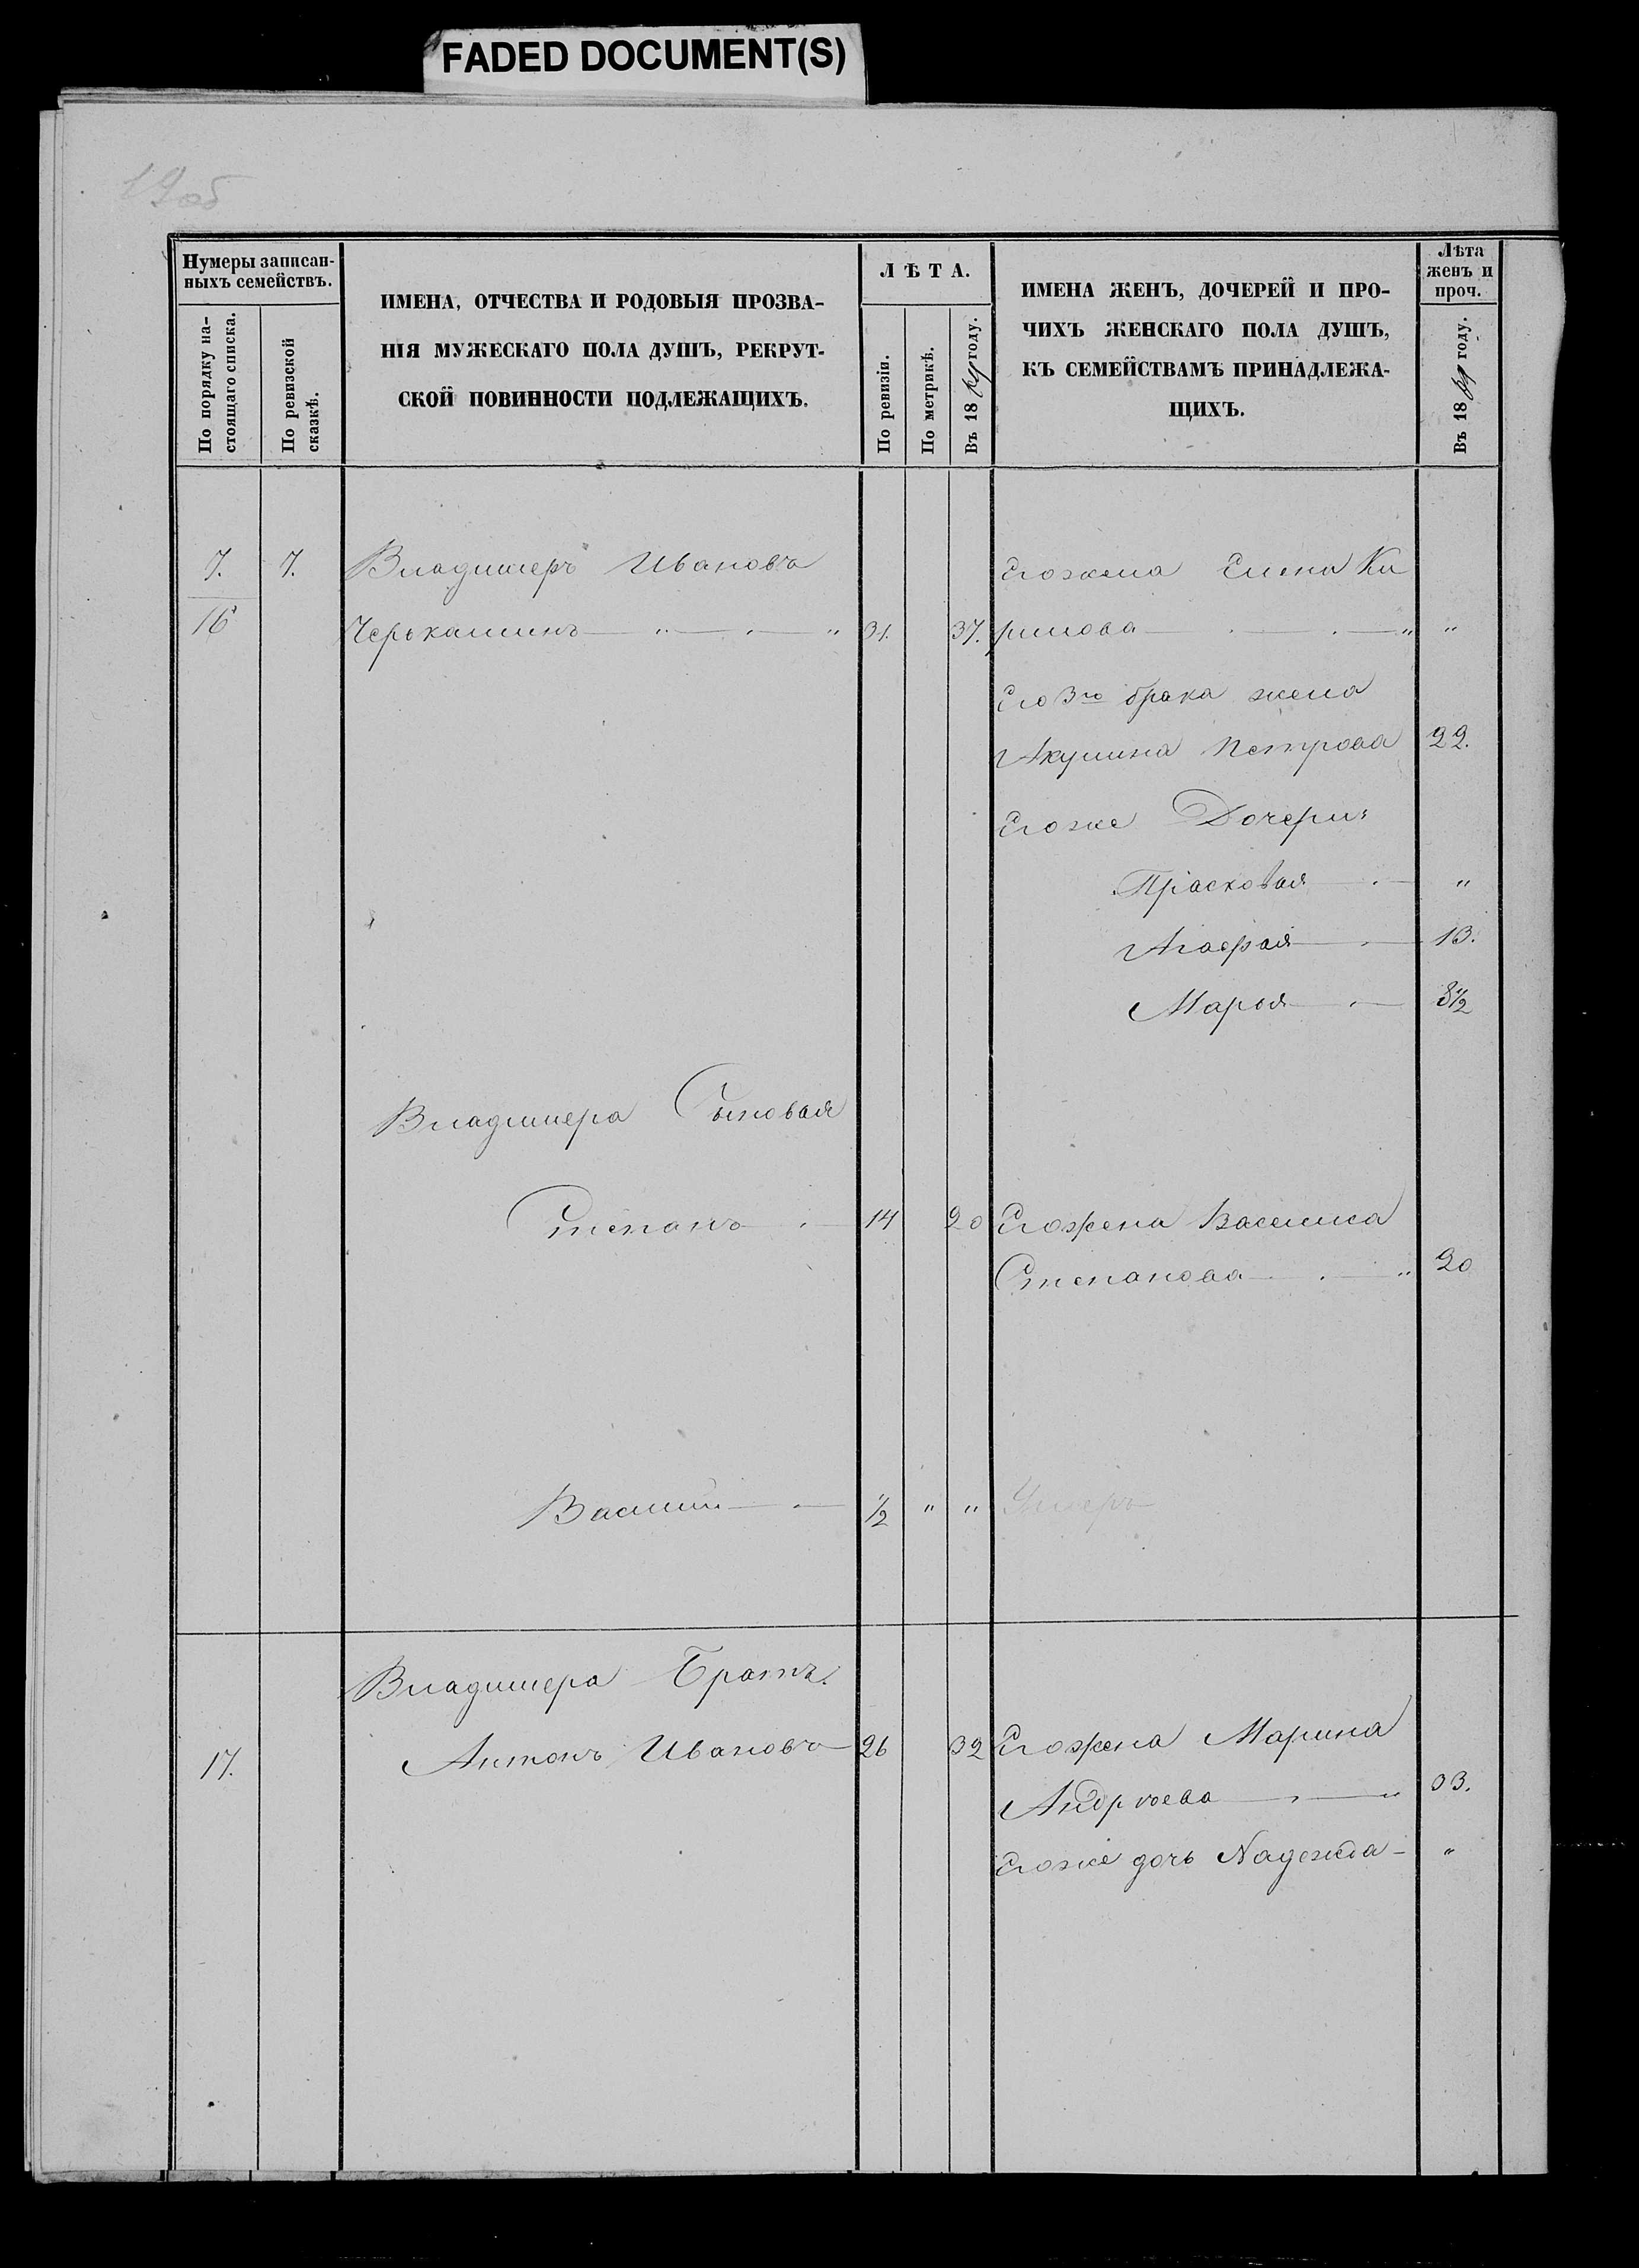 FADED DOCUMENT(S)
19об
Нумеры записан-
ныхъ семействъ.
По порядку на-
стоящаго списка.
По ревизской
сказкѣ.
ИМЕНА, ОТЧЕСТВА И РОДОВЫЯ ПРОЗВА-
НІЯ МУЖЕСКАГО ПОЛА ДУШЪ, РЕКРУТ-
СКОЙ ПОВИННОСТИ ПОДЛЕЖАЩИХЪ.
ЛѢТА.
По ревизіи.
По метрикѣ.
Въ 18 году.
ИМЕНА ЖЕНЪ, ДОЧЕРЕЙ И ПРО-
ЧИХЪ ЖЕНСКАГО ПОЛА ДУШЪ,
КЪ СЕМЕЙСТВАМЪ ПРИНАДЛЕЖА-
ЩИХЪ.
Лѣта
женъ и
проч.
Въ 18 году.
7. 7. Владимеръ Ивановъ Егожена Елена Ки
16 Черькашинъ — " — " — " 31. 37. рилова — " "
Его 3го брака жена
Акулина Петрова 22.
Егоже Дочери:
Прасковья — "
Агафья — 13.
Марья — 8½
Владимера Сыновья
Степанъ — 14 20 Егожена Василиса
Степанова — " 20
Василий — ½ " " Умеръ
Владимера Братъ.
17. Антонъ Ивановъ — 26 32 Егожена Марина
Андрѣева — " 33.
Егоже дочь Надежда — "